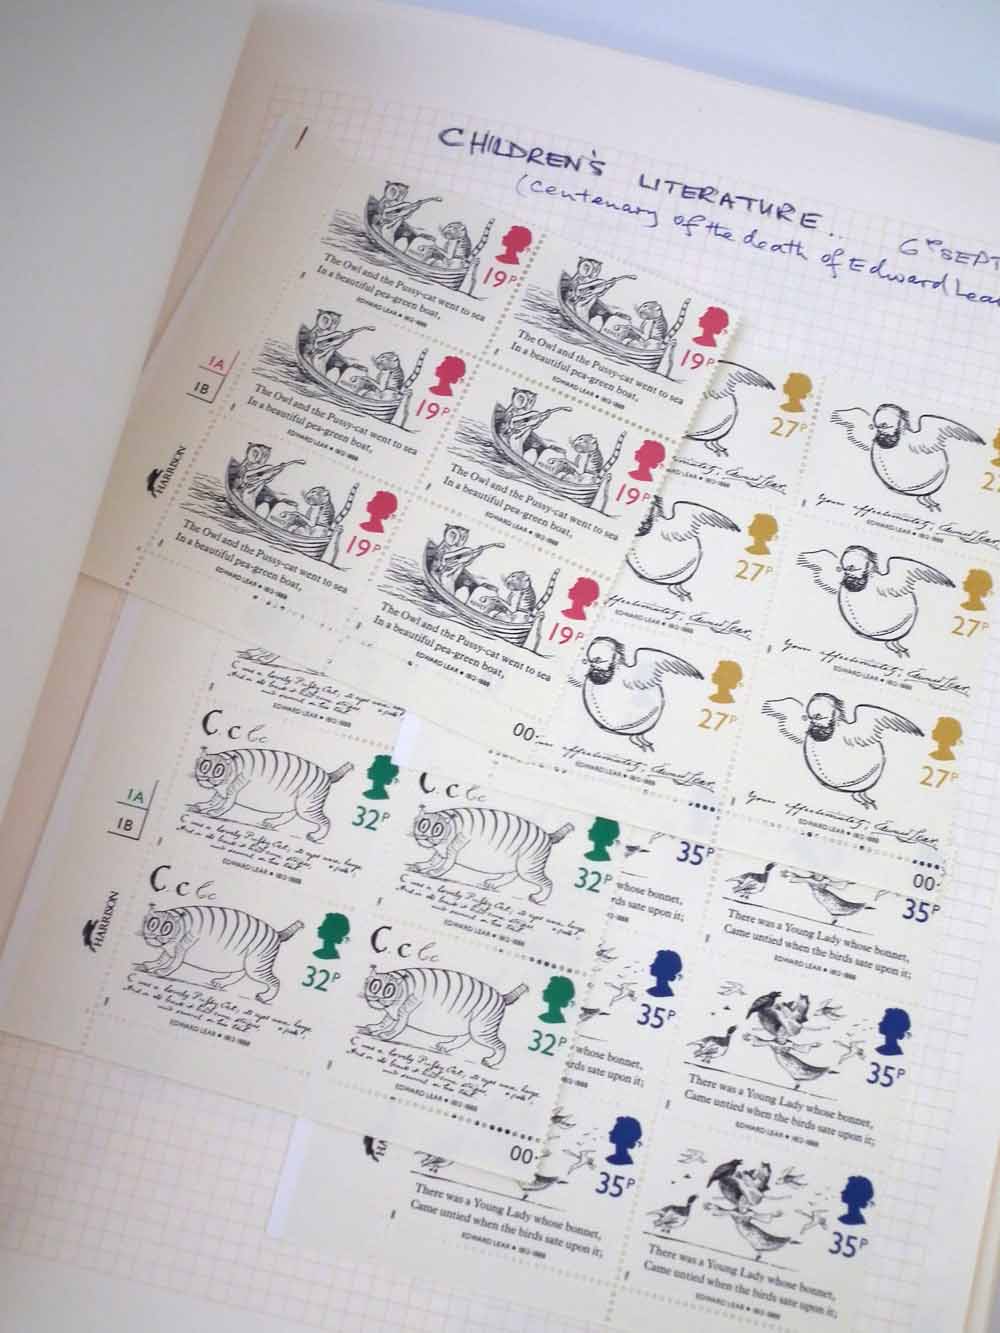 CHILDREN'S LITERATURE..
6th SEPT
(Centenary of the death of Edward Lear
19P
The Owl and the Pussy-cat went to sea
In a beautiful pea-green boat,
EDWARD LEAR • 1812-1888
19P
The Owl and the Pussy-cat went to sea
In a beautiful pea-green boat,
EDWARD LEAR • 1812-1888
1A
1B
19P
The Owl and the Pussy-cat went to sea
In a beautiful pea-green boat,
EDWARD LEAR • 1812-1888
19P
The Owl and the Pussy-cat went to sea
In a beautiful pea-green boat,
EDWARD LEAR • 1812-1888
HARRISON
19P
The Owl and the Pussy-cat went to sea
In a beautiful pea-green boat,
EDWARD LEAR • 1812-1888
19P
The Owl and the Pussy-cat went to sea
In a beautiful pea-green boat,
EDWARD LEAR • 1812-1888
00
27P
Edward Lear.
27
Your affectionately, Edward Lear.
EDWARD LEAR • 1812-1888
27P
affectionately, Edward Lear.
EDWARD LEAR • 1812-1888
27P
Your affectionately, Edward Lear.
EDWARD LEAR • 1812-1888
27P
affectionately, Edward Lear.
EDWARD LEAR • 1812-1888
27P
Your affectionately, Edward Lear.
EDWARD LEAR • 1812-1888
00
EDWARD LEAR • 1812-1888
1A
1B
C c
32P
C was a lovely Pussy Cat; its eyes were large
EDWARD LEAR • 1812-1888
C c
32P
C was a lovely Pussy Cat; its eyes were large
EDWARD LEAR • 1812-1888
HARRISON
C c
32P
C was a lovely Pussy Cat; its eyes were large
EDWARD LEAR • 1812-1888
C c
32P
C was a lovely Pussy Cat; its eyes were large
EDWARD LEAR • 1812-1888
00
35P
whose bonnet,
rds sate upon it;
35P
There was a Young Lady whose bonnet,
Came untied when the birds sate upon it;
EDWARD LEAR • 1812-1888
35P
whose bonnet,
rds sate upon it;
35P
There was a Young Lady whose bonnet,
Came untied when the birds sate upon it;
EDWARD LEAR • 1812-1888
35P
There was a Young Lady whose bonnet,
Came untied when the birds sate upon it;
EDWARD LEAR • 1812-1888
35P
There was a Young Lady whose bonnet,
Came untied when the birds sate upon it;
EDWARD LEAR • 1812-1888